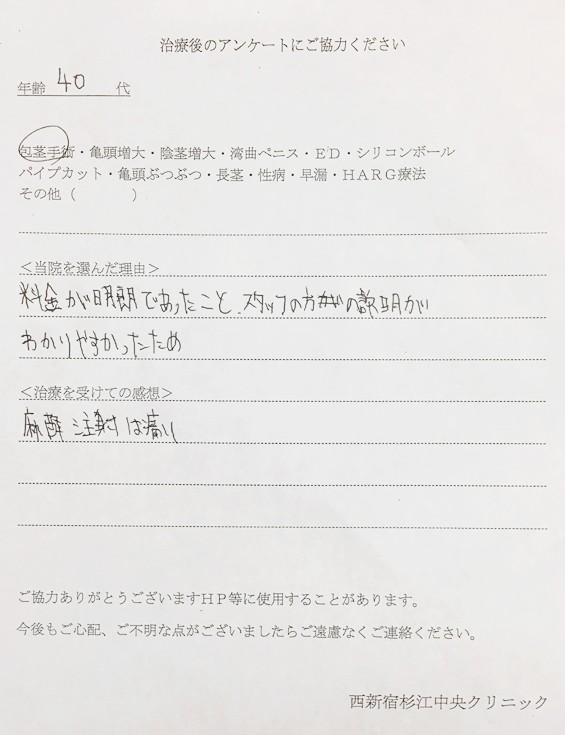 治療後のアンケートにご協力ください
年齢 40 代
包茎手術・亀頭増大・陰茎増大・湾曲ペニス・ED・シリコンボール
パイプカット・亀頭ぶつぶつ・長茎・性病・早漏・HARG療法
その他（　　　）
＜当院を選んだ理由＞
料金が明朗であったこと、スタッフの方々の説明が
わかりやすかったため
＜治療を受けての感想＞
麻酔注射は痛い
ご協力ありがとうございますHP等に使用することがあります。
今後もご心配、ご不明な点がございましたらご遠慮なくご連絡ください。
西新宿杉江中央クリニック